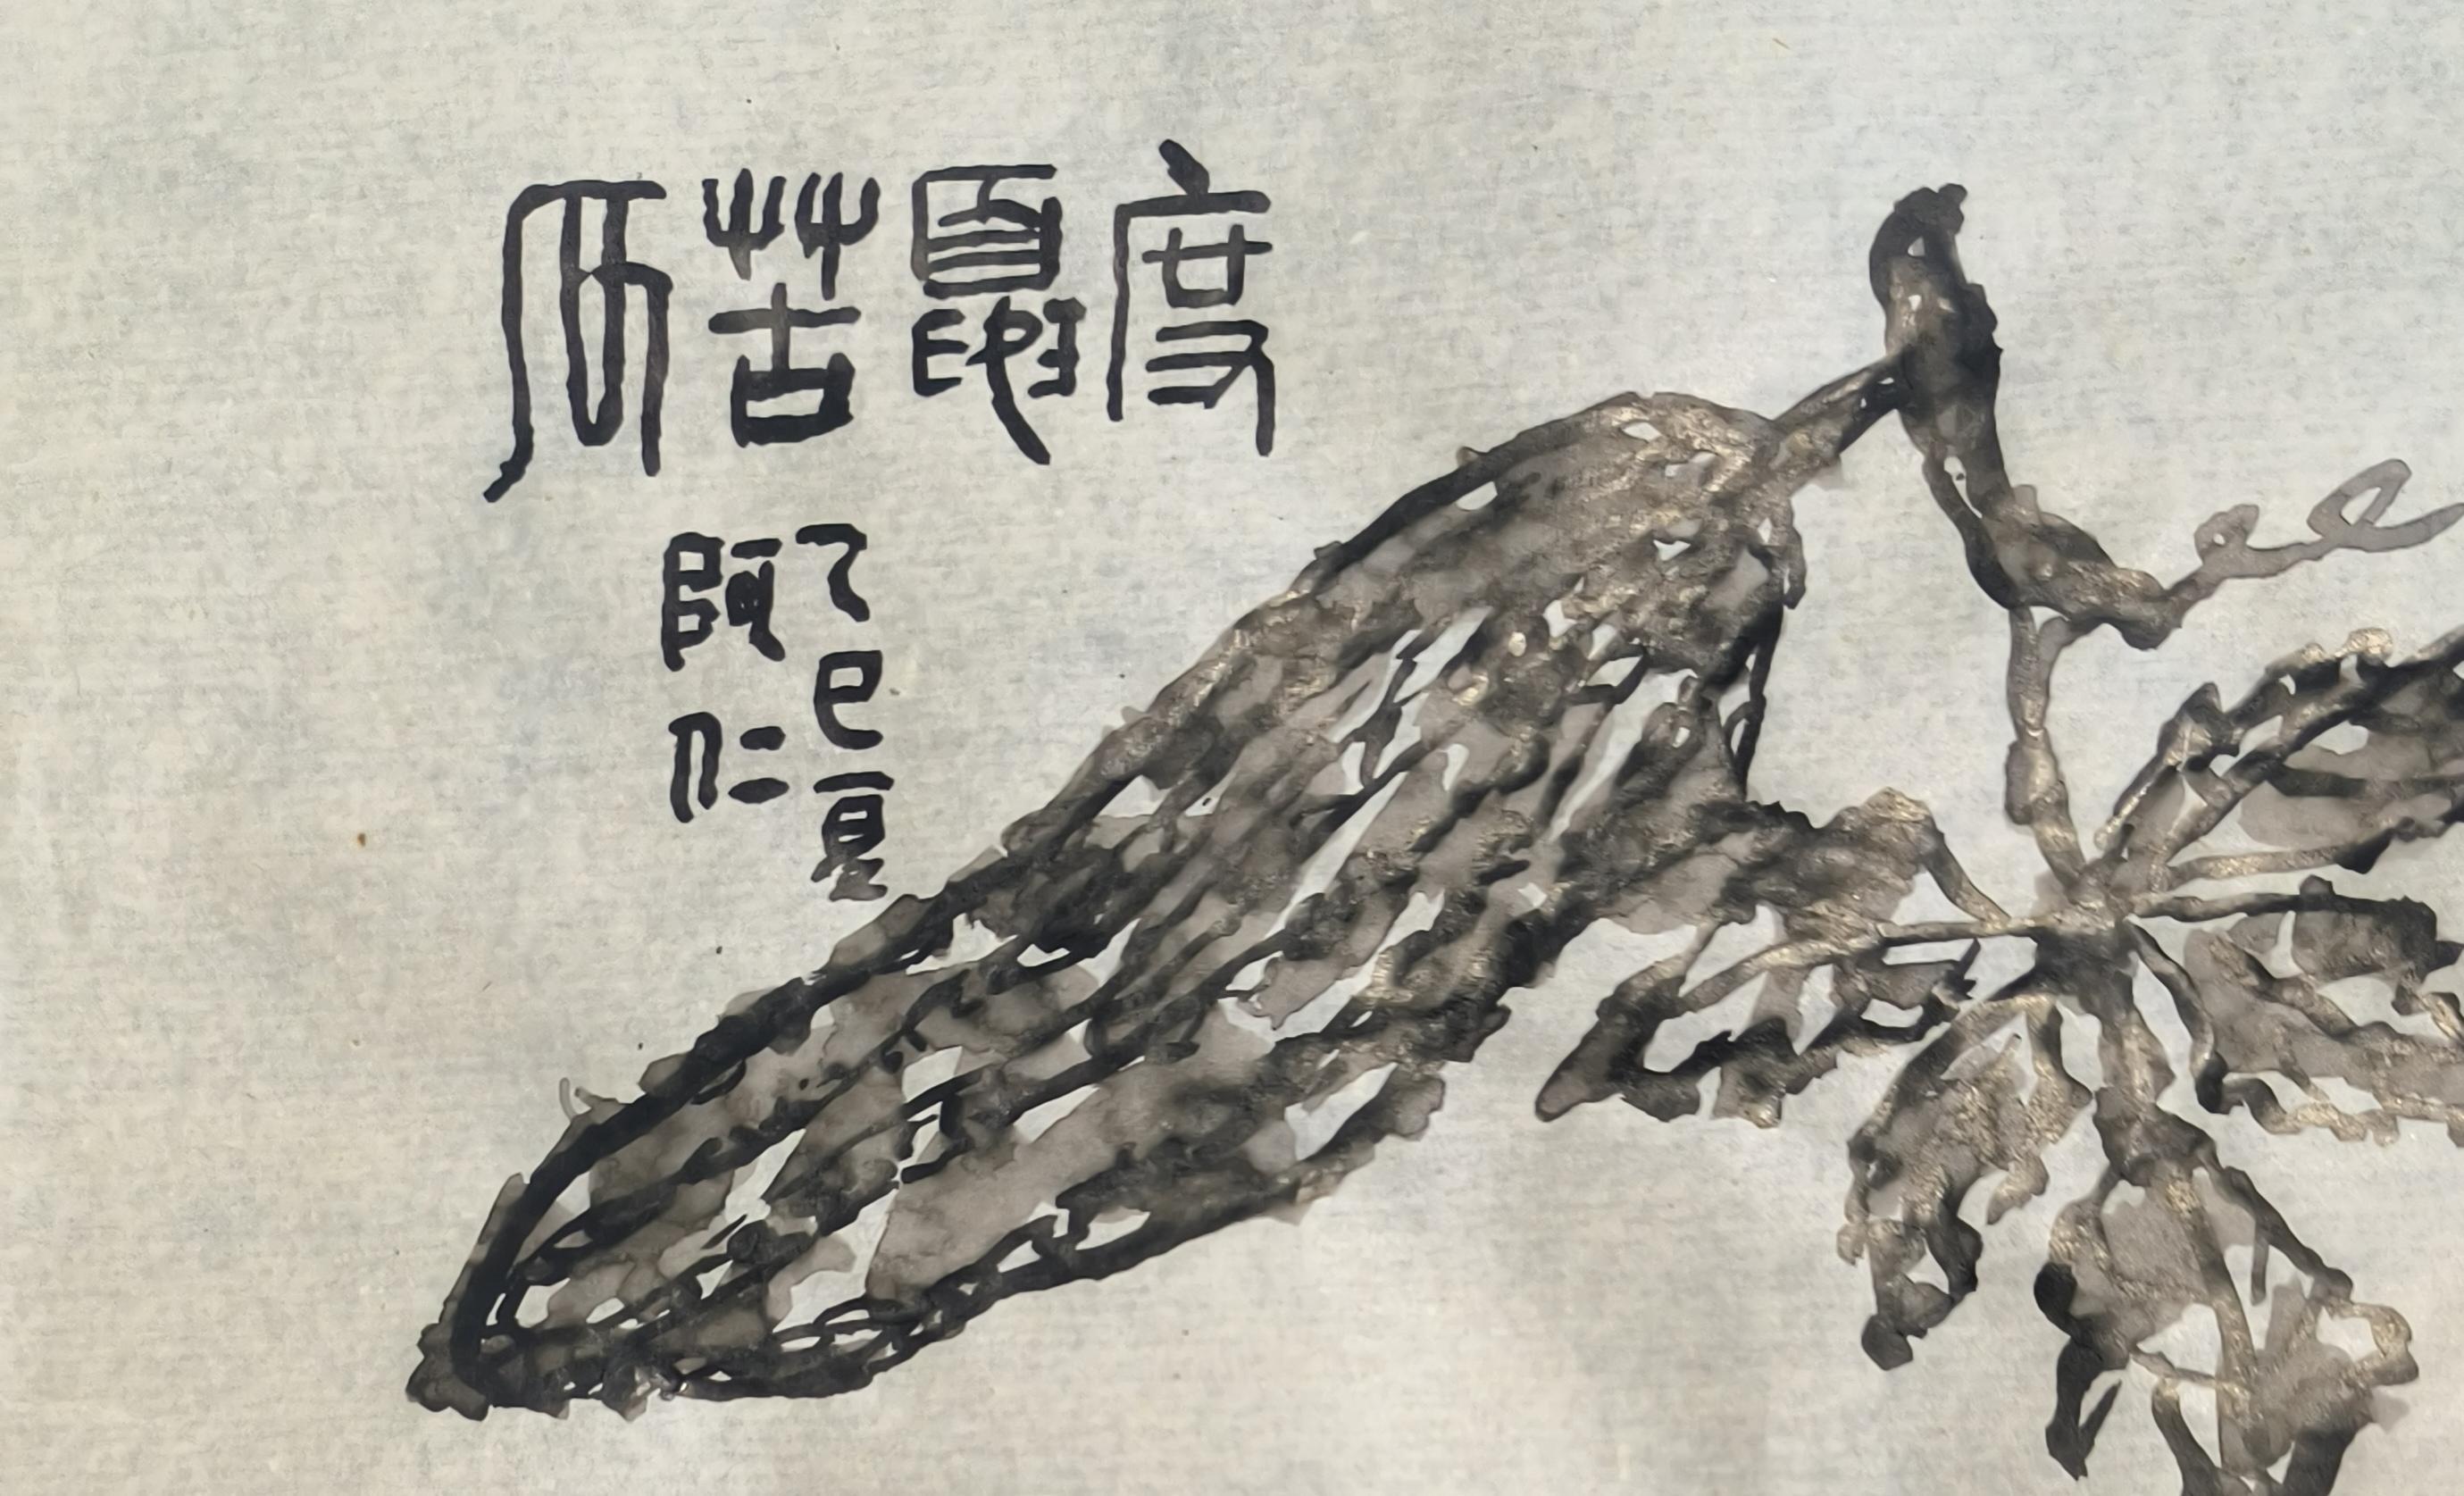 度夏苦瓜
乙巳夏
阿仁